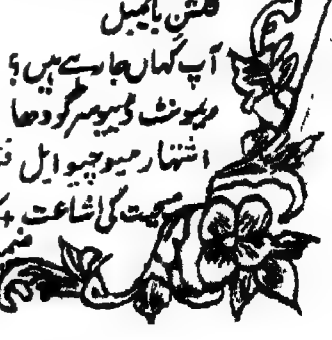 متن بائیبل
آپ کہاں جا رہے ہیں؟
ریمونٹ ڈیپو سرگودھا
اشتہار میو چیو ایل
مسیحیت کی اشاعت +